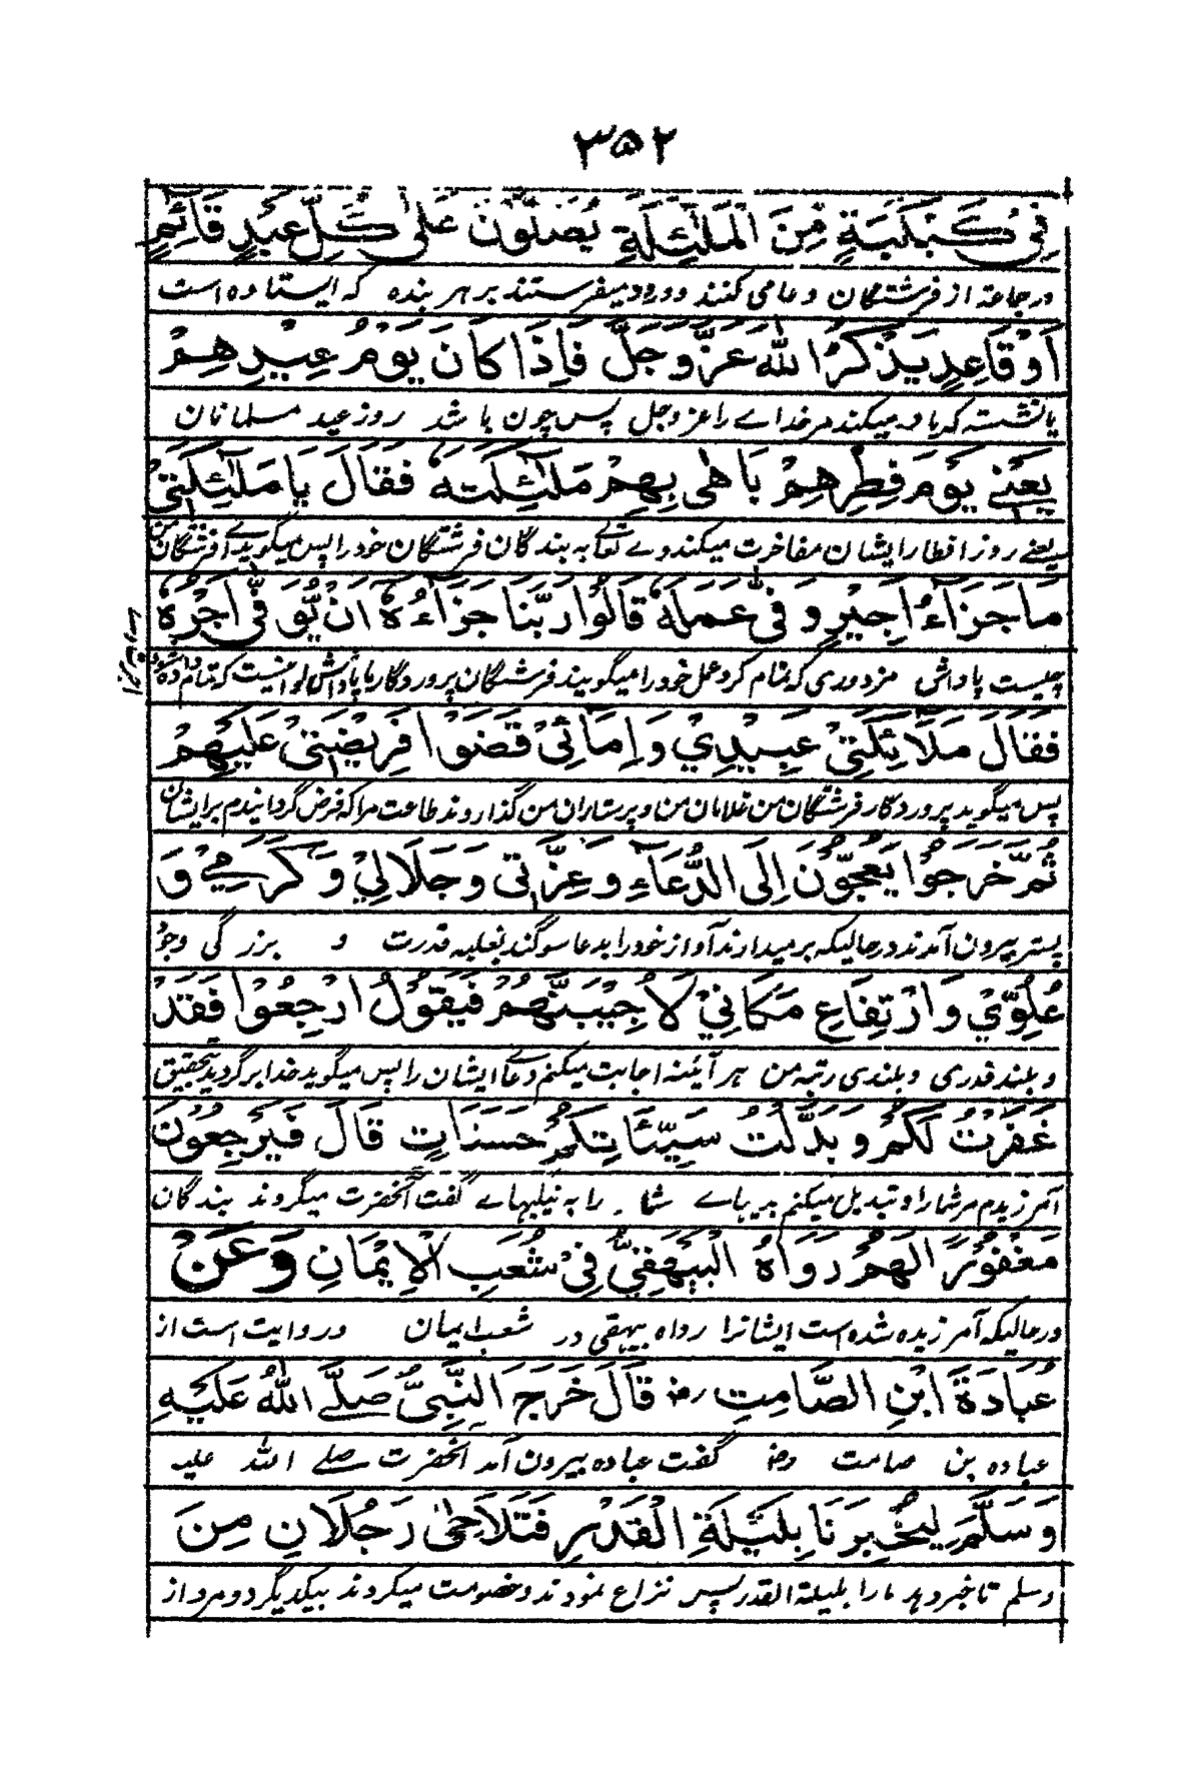 ۳۵۲
فِيْ كَبْكَبَةٍ مِّنَ الْمَلٰٓئِكَةِ يُصَلُّوْنَ عَلٰى كُلِّ عَبْدٍ قَآئِمٍ
در جماعۃ از فرشتگان دعا می کنند و درود میفرستند بر هر بنده که ایستاده است
اَوْ قَاعِدٍ يَذْكُرُ اللهَ عَزَّ وَجَلَّ فَاِذَا كَانَ يَوْمُ عِيْدِهِمْ
یا نشسته که یاد میکند مر خداے را عز وجل پس چون باشد روز عید مسلمانان
يَعْنِيْ يَوْمَ فِطْرِهِمْ بَاهٰى بِهِمْ مَلٰٓئِكَتَهٗ فَقَالَ يَا مَلٰٓئِكَتِيْ
یعنے روز افطار ایشان مفاخرت میکند وے تعالے به بندگان فرشتگان خود را پس میگوید اے فرشتگان من
مَا جَزَآءُ اَجِيْرٍ وَفّٰى عَمَلَهٗ قَالُوْا رَبَّنَا جَزَآءُهٗ اَنْ يُّوَفّٰى اَجْرُهٗ
چیست پاداش مزدوری که تمام کرد عمل خود را میگویند فرشتگان پروردگار ما پاداش او آنست که تمام داده شود
فَقَالَ مَلَائِكَتِيْ عَبِيْدِيْ وَاِمَائِيْ قَضَوْا فَرِيْضَتِيْ عَلَيْهِمْ
پس میگوید پروردگار فرشتگان من غلامان من و پرستاران من گذاروند طاعت مرا که فرض گردانیدم بر ایشان
ثُمَّ خَرَجُوْا يَعُجُّوْنَ اِلَى الدُّعَآءِ وَعِزَّتِيْ وَجَلَالِيْ وَكَرَمِيْ وَ
پستر بیرون آمدند در حالیکه بر میدارند آواز خود را بدعا سوگند بغلبه قدرت و بزرگی وجود
عُلُوِّيْ وَارْتِفَاعِ مَكَانِيْ لَاُجِيْبَنَّهُمْ فَيَقُوْلُ ارْجِعُوْا فَقَدْ
و بلند قدری و بلندی رتبه من هر آئینه اجابت میکنم دعاے ایشان را پس میگوید خدا برگردید بتحقیق
غَفَرْتُ لَكُمْ وَبَدَّلْتُ سَيِّئَاتِكُمْ حَسَنَاتٍ قَالَ فَيَرْجِعُوْنَ
آمرزیدم مر شما را و تبدیل میکنم بدیہاے شما را به نیکیہاے گفت آنحضرت میگروند بندگان
مَغْفُوْرًا لَهُمْ رَوَاهُ الْبَيْهَقِيُّ فِيْ شُعَبِ الْاِيْمَانِ وَعَنْ
در حالیکه آمرزیده شده است ایشانرا رواه بیهقی در شعب ایمان و روایت است از
عُبَادَةَ ابْنِ الصَّامِتِ رض قَالَ خَرَجَ النَّبِيُّ صَلَّے اللهُ عَلَيْهِ
عباده بن صامت رض گفت عباده بیرون آمد آنحضرت صلے اللہ علیہ
وَسَلَّمَ لِيُخْبِرَنَا بِلَيْلَةِ الْقَدْرِ فَتَلَاحٰى رَجُلَانِ مِنَ
وسلم تا خبر دهد ما را بلیلۃ القدر پس نزاع نمودند و خصومت میکردند بیکدیگر دو مرد از